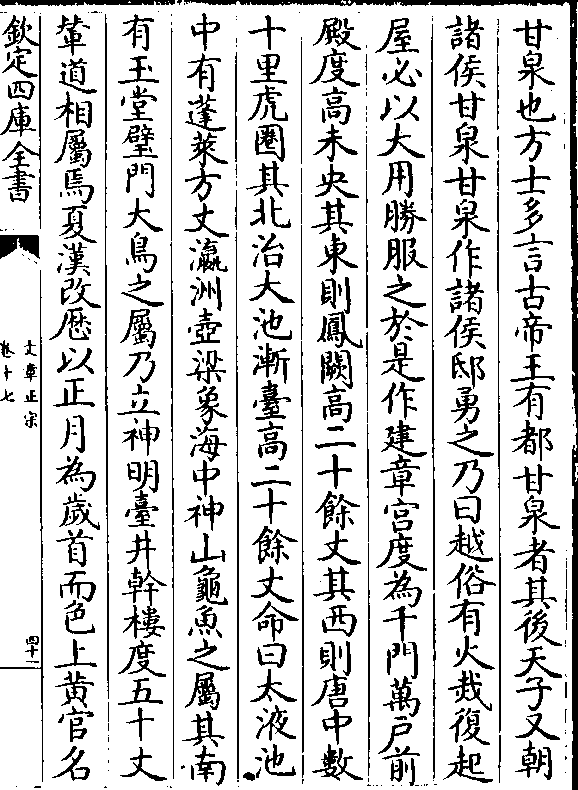 甘泉也方士多言古帝王有都甘泉者其後天子又朝
諸侯甘泉甘泉作諸侯邸勇之乃曰越俗有火烖復起
屋必以大用勝服之於是作建章宫度為千門萬戸前
殿度高未央其東則鳳闕高二十餘丈其西則唐中數
十里虎圈其北治大池漸臺高二十餘丈命曰太液池
中有蓬萊方丈瀛洲壺梁象海中神山龜魚之屬其南
有玉堂璧門大鳥之屬乃立神明臺井幹樓度五十丈
輦道相屬焉夏漢改厯以正月為歲首而色上黄官名
欽定四庫全書
文章正宗
卷十七
四十一